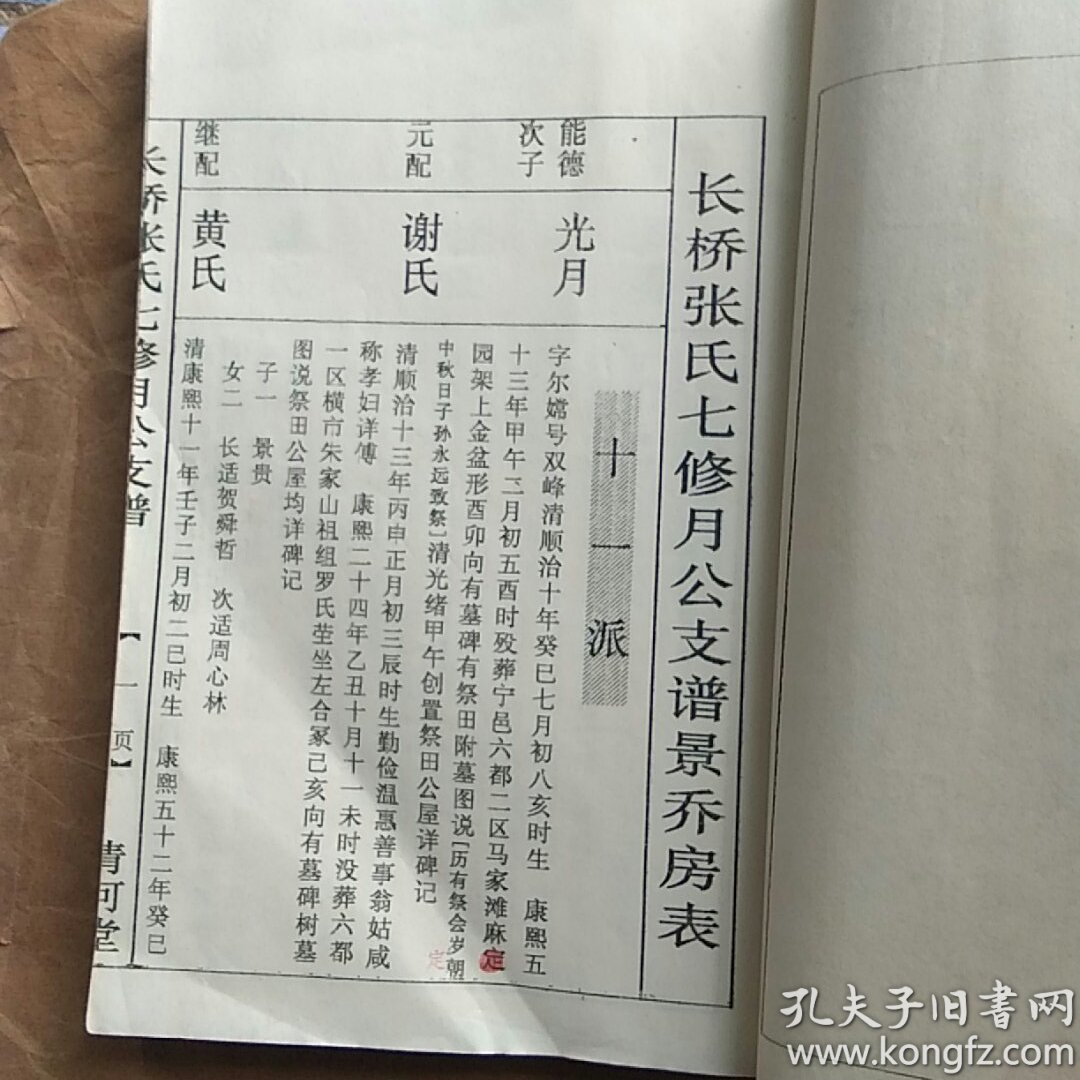 长桥张氏七修月公支谱景乔房表
十一派
能德
次子
光月
字尔嫦号双峰清顺治十年癸巳七月初八亥时生 康熙五
十三年甲午三月初五酉时殁葬宁邑六都二区马家滩麻定
园架上金盆形酉卯向有墓碑有祭田附墓图说[历有祭会岁朝
中秋日子孙永远致祭]清光绪甲午创置祭田公屋详碑记
定
元配
谢氏
清顺治十三年丙申正月初三辰时生勤俭温惠善事翁姑咸
称孝妇详傅 康熙二十四年乙丑十月十一未时没葬六都
一区横市朱家山祖组罗氏茔坐左合冢己亥向有墓碑树墓
图说祭田公屋均详碑记
子一 景贵
女二 长适贺舜哲 次适周心林
继配
黄氏
清康熙十一年壬子二月初二巳时生 康熙五十二年癸巳
长桥张氏七修月公支谱
【一页】
清河堂
孔夫子旧书网
www.kongfz.com